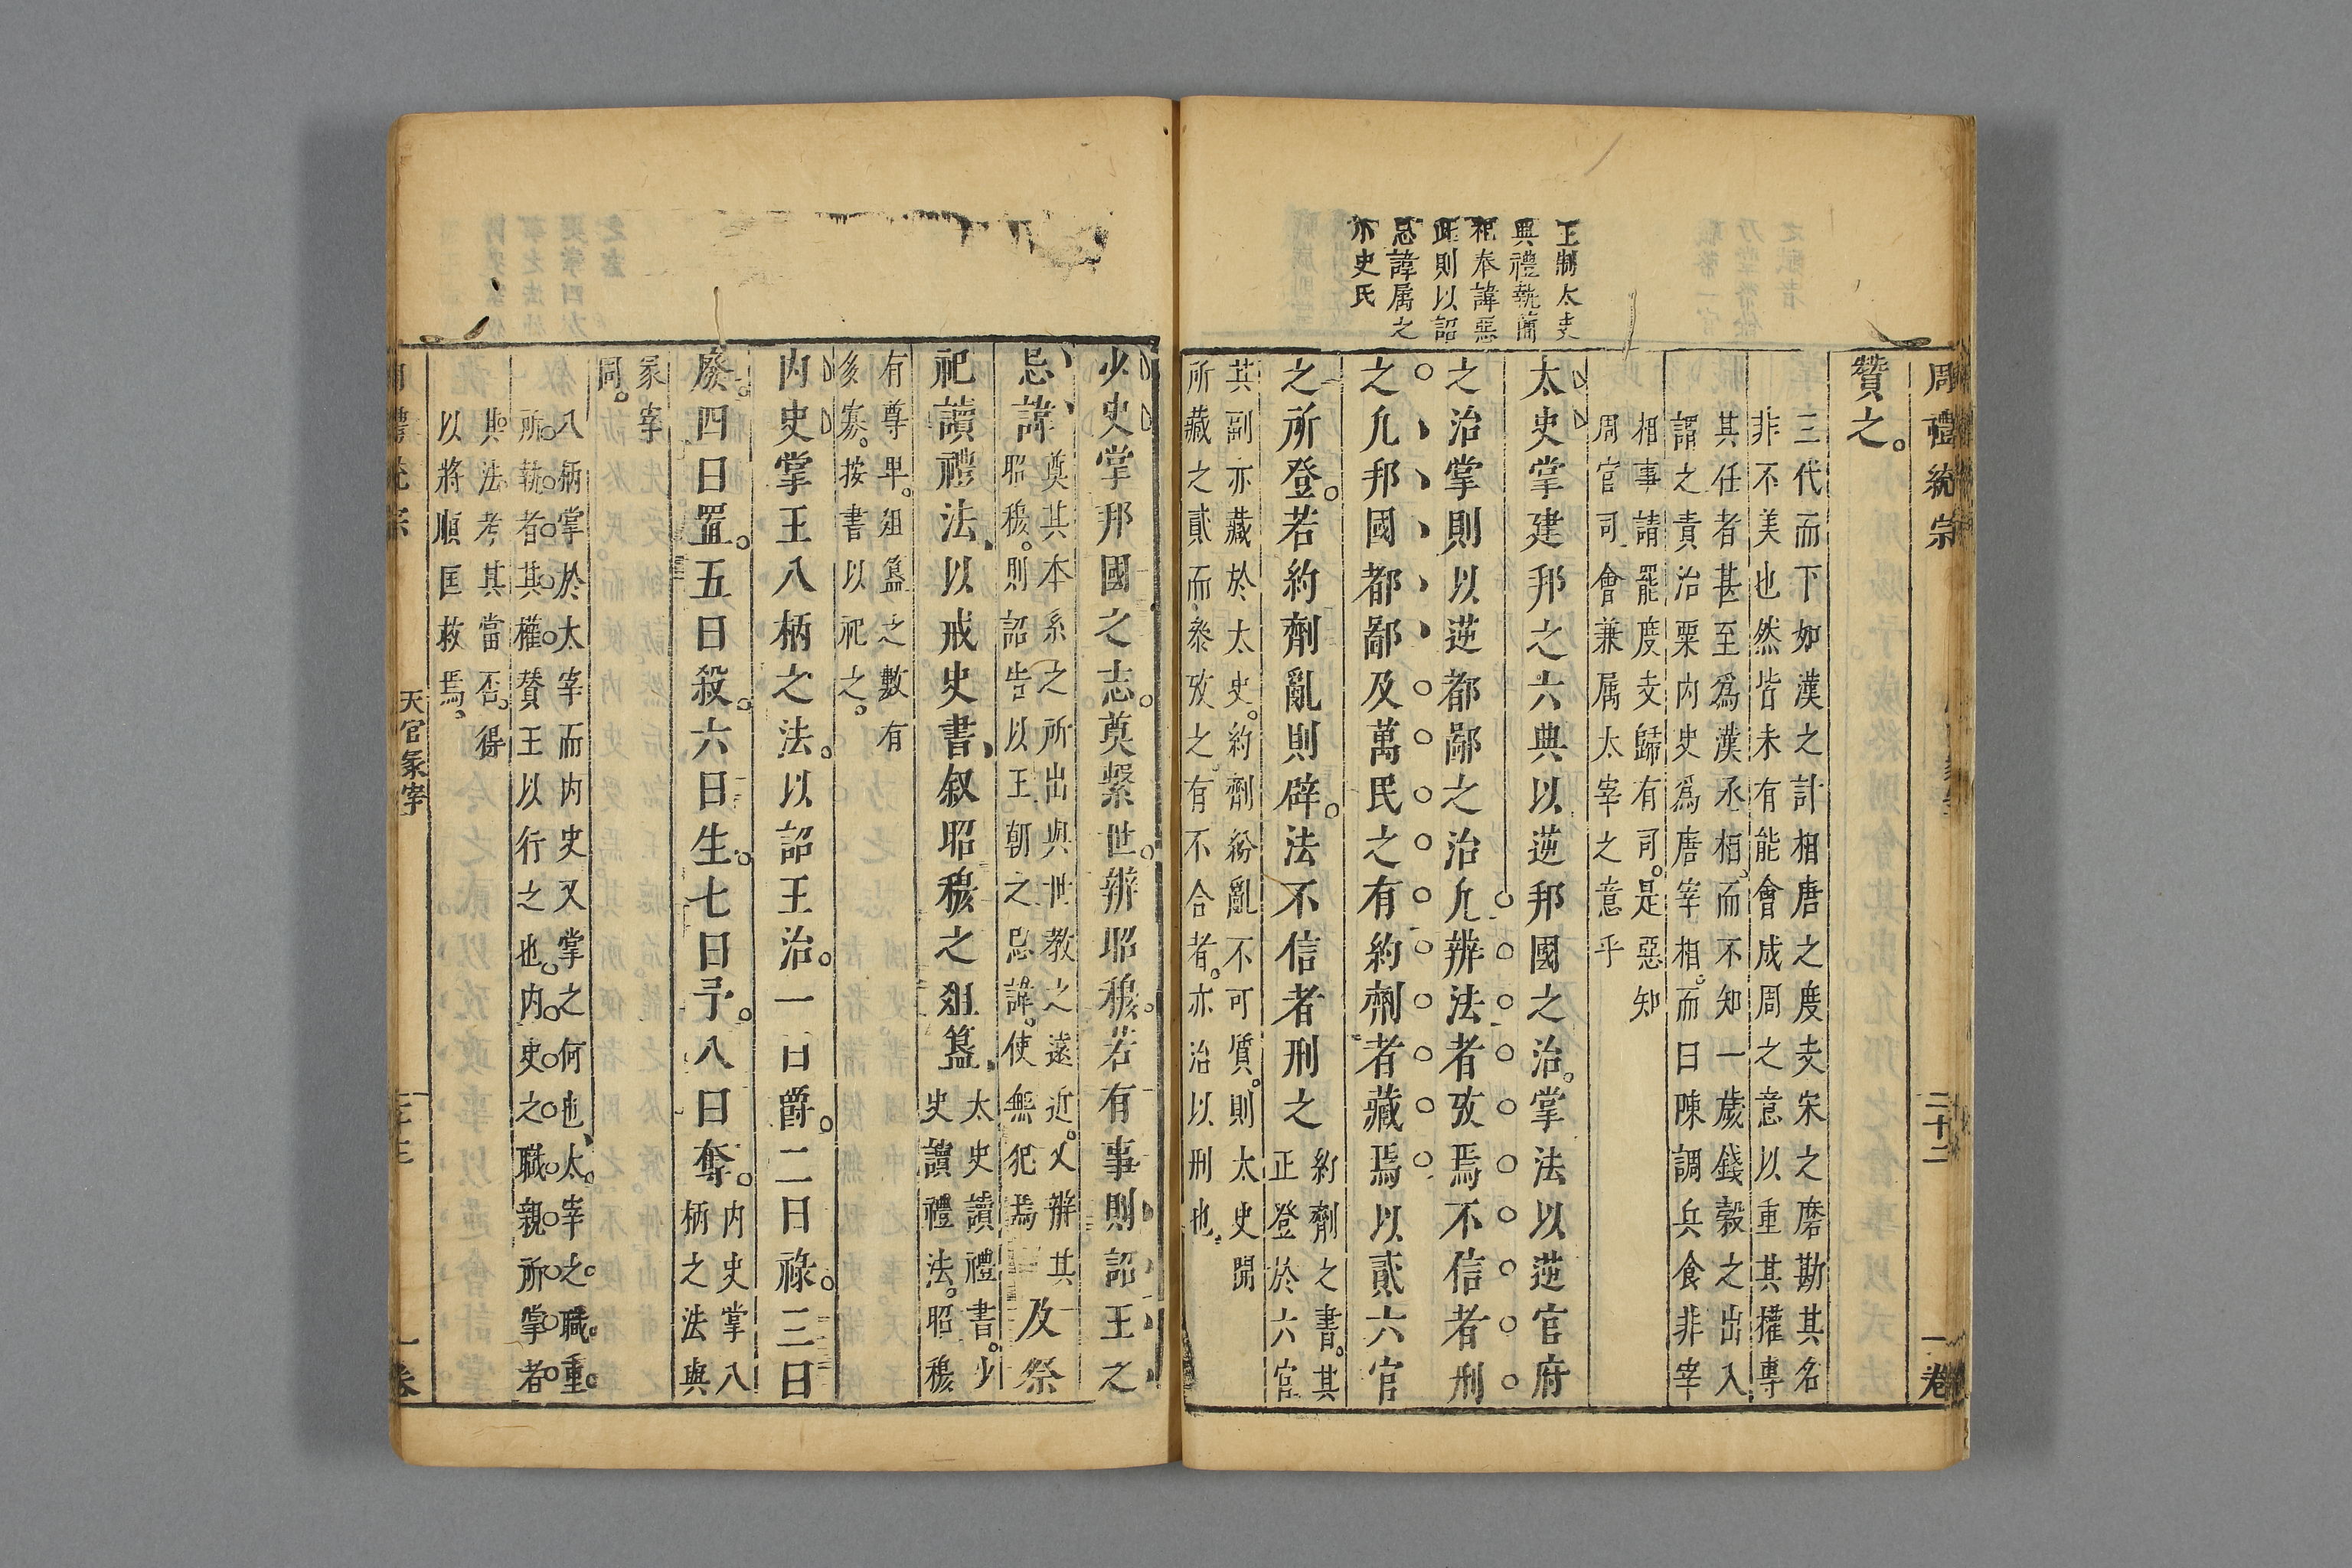 周禮統宗
二十二
一卷
王制太史
典禮執簡
祀奉諱惡
此則以詔
忌諱屬之
亦史氏
贊之。
三代而下如漢之計相唐之度支宋之磨勘其名
非不美也然皆未有能會成周之意以重其權專
其任者甚至爲漢丞相而不知一歲錢穀之出入
謂之責治粟內史爲唐宰相而曰陳調兵食非宰
相事請罷度支歸有司。是惡知
周官司會兼属太宰之意乎
太史掌建邦之六典以逆邦國之治。掌法以逆官府
之治掌則以逆都鄙之治凢辨法者攷焉不信者刑
之凢邦國都鄙及萬民之有約劑者藏焉以貳六官
之所登。若約劑亂則辟。法不信者刑之
約劑之書。其
正登於六官
其副亦藏於太史。約劑紛亂不可質。則太史開
所藏之貳而叅攷之。有不合者。亦治以刑也。
少史掌邦國之志。奠繫世。辨昭穆。若有事則詔王之
忌諱
奠其本系之所出與世教之遠近。乂辨其
昭穆。則詔告以王朝之忌諱。使無犯焉
及祭
祀讀禮法、以戒史書、叙昭穆之俎簋、
太史讀禮書。少
史讀禮法。昭穆
有尊卑。俎簋之數有
多寡。按書以祀之。
內史掌王八柄之法。以詔王治。一曰爵。二曰祿。三曰
廢。四曰置。五曰殺。六曰生。七曰予。八曰奪。
內史掌八
柄之法與
冢宰
同。
八柄掌於太宰而内史又掌之何也、太宰之職重
所執者其權贊王以行之也。内史之職親所掌者
其法考其當否。得
以將順匡救焉。
天官冢宰